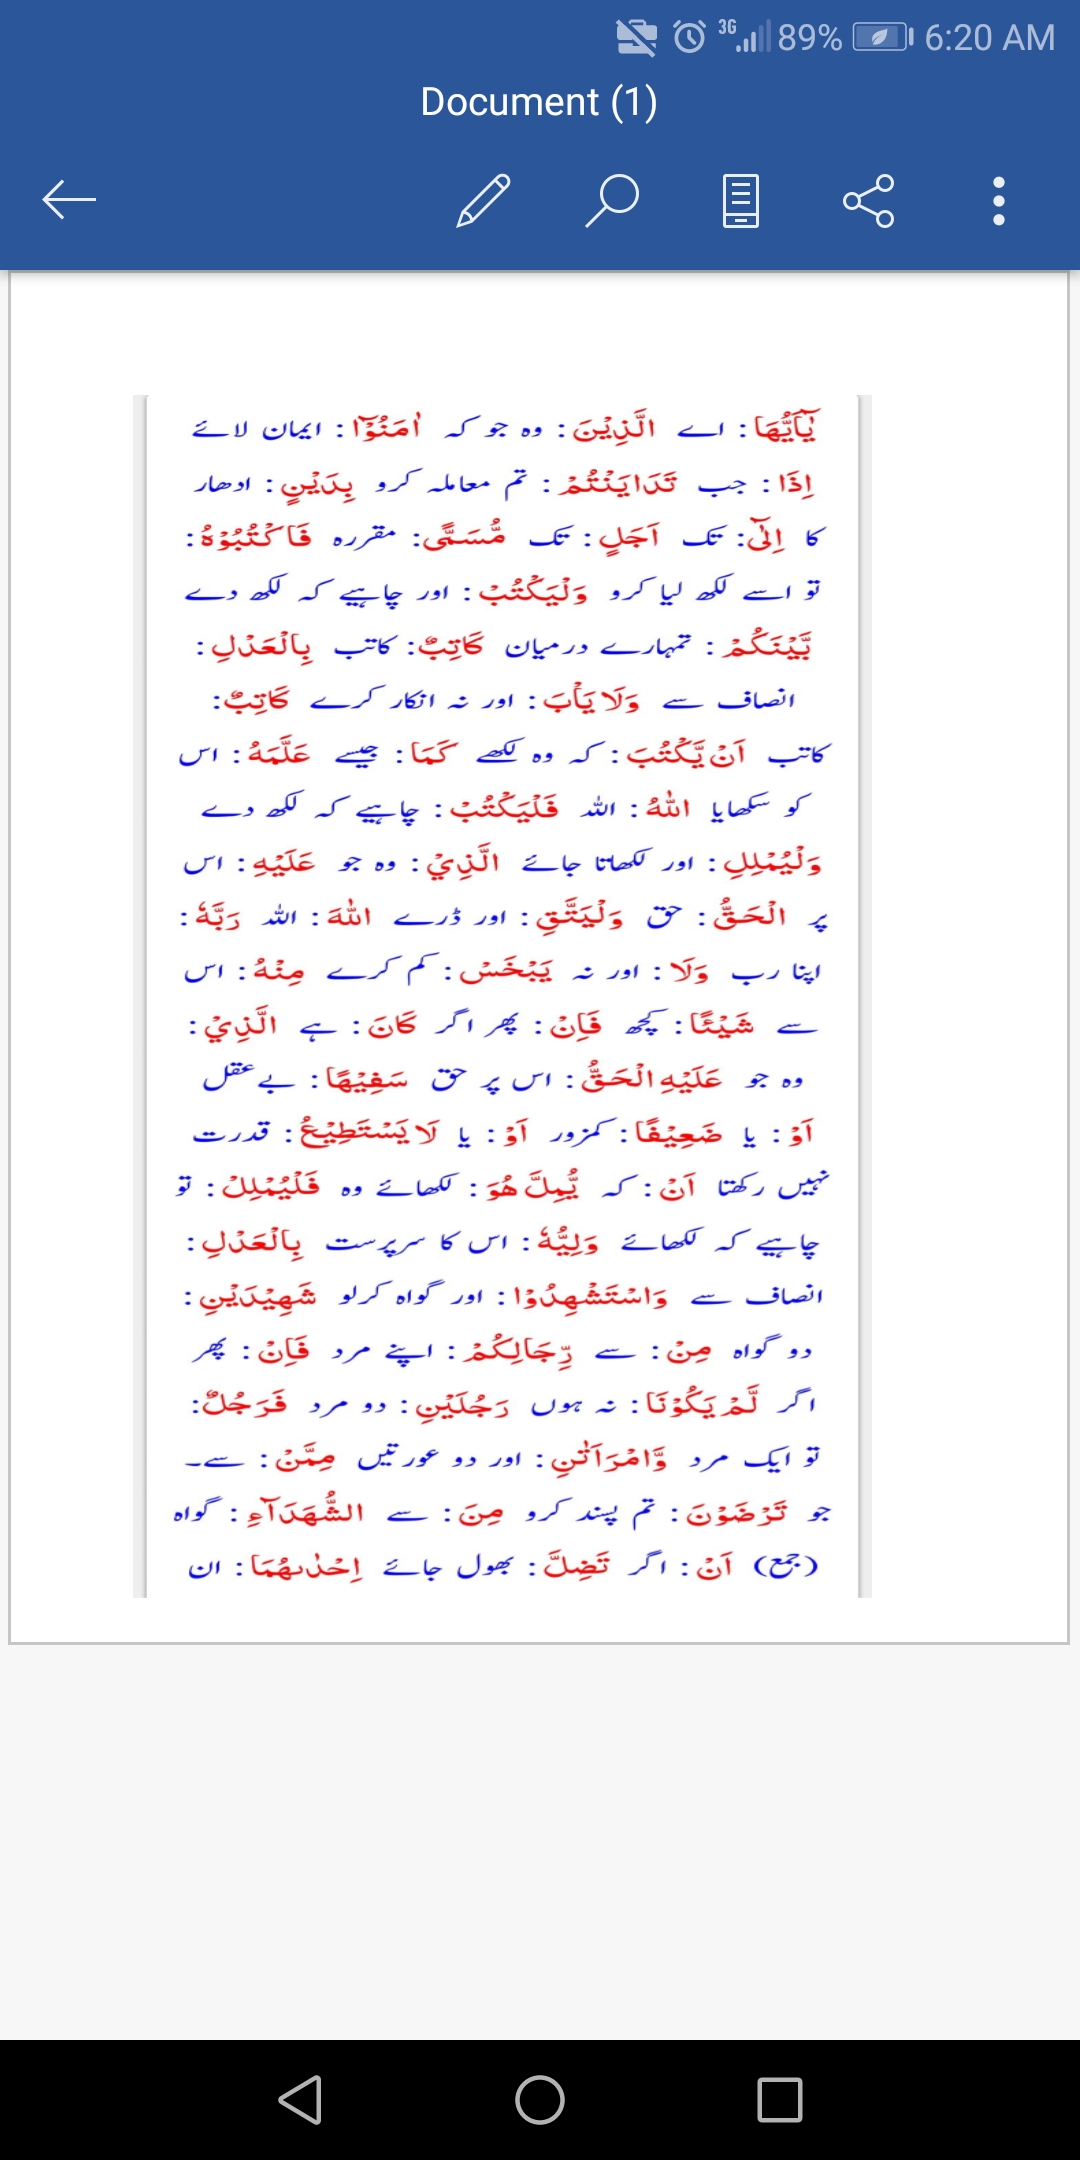 3G 89% 6:20 AM
Document (1)
يٰٓاَيُّهَا : اے الَّذِيْنَ : وہ جو کہ اٰمَنُوْٓا : ایمان لائے
اِذَا : جب تَدَايَنْتُمْ : تم معاملہ کرو بِدَيْنٍ : ادھار
کا اِلٰٓى: تک اَجَلٍ : تک مُّسَمًّى: مقررہ فَاكْتُبُوْهُ :
تو اسے لکھ لیا کرو وَلْيَكْتُبْ : اور چاہیے کہ لکھ دے
بَّيْنَكُمْ : تمہارے درمیان كَاتِبٌ : کاتب بِالْعَدْلِ :
انصاف سے وَلَا يَاْبَ : اور نہ انکار کرے كَاتِبٌ :
کاتب اَنْ يَّكْتُبَ : کہ وہ لکھے كَمَا : جیسے عَلَّمَهُ : اس
کو سکھایا اللّٰهُ : اللہ فَلْيَكْتُبْ : چاہیے کہ لکھ دے
وَلْيُمْلِلِ : اور لکھاتا جائے الَّذِيْ : وہ جو عَلَيْهِ : اس
پر الْحَقُّ : حق وَلْيَتَّقِ : اور ڈرے اللّٰهَ : اللہ رَبَّهٗ :
اپنا رب وَلَا : اور نہ يَبْخَسْ : کم کرے مِنْهُ : اس
سے شَيْئًا : کچھ فَاِنْ : پھر اگر كَانَ : ہے الَّذِيْ :
وہ جو عَلَيْهِ الْحَقُّ : اس پر حق سَفِيْهًا : بے عقل
اَوْ : یا ضَعِيْفًا : کمزور اَوْ : یا لَا يَسْتَطِيْعُ : قدرت
نہیں رکھتا اَنْ : کہ يُّمِلَّ هُوَ : لکھائے وہ فَلْيُمْلِلْ : تو
چاہیے کہ لکھائے وَلِيُّهٗ : اس کا سرپرست بِالْعَدْلِ :
انصاف سے وَاسْتَشْهِدُوْا : اور گواہ کرلو شَهِيْدَيْنِ :
دو گواہ مِنْ : سے رِّجَالِكُمْ : اپنے مرد فَاِنْ : پھر
اگر لَّمْ يَكُوْنَا : نہ ہوں رَجُلَيْنِ : دو مرد فَرَجُلٌ :
تو ایک مرد وَّامْرَاَتٰنِ : اور دو عورتیں مِمَّنْ : سے۔
جو تَرْضَوْنَ : تم پسند کرو مِنَ : سے الشُّهَدَآءِ : گواہ
(جمع) اَنْ : اگر تَضِلَّ : بھول جائے اِحْدٰىهُمَا : ان